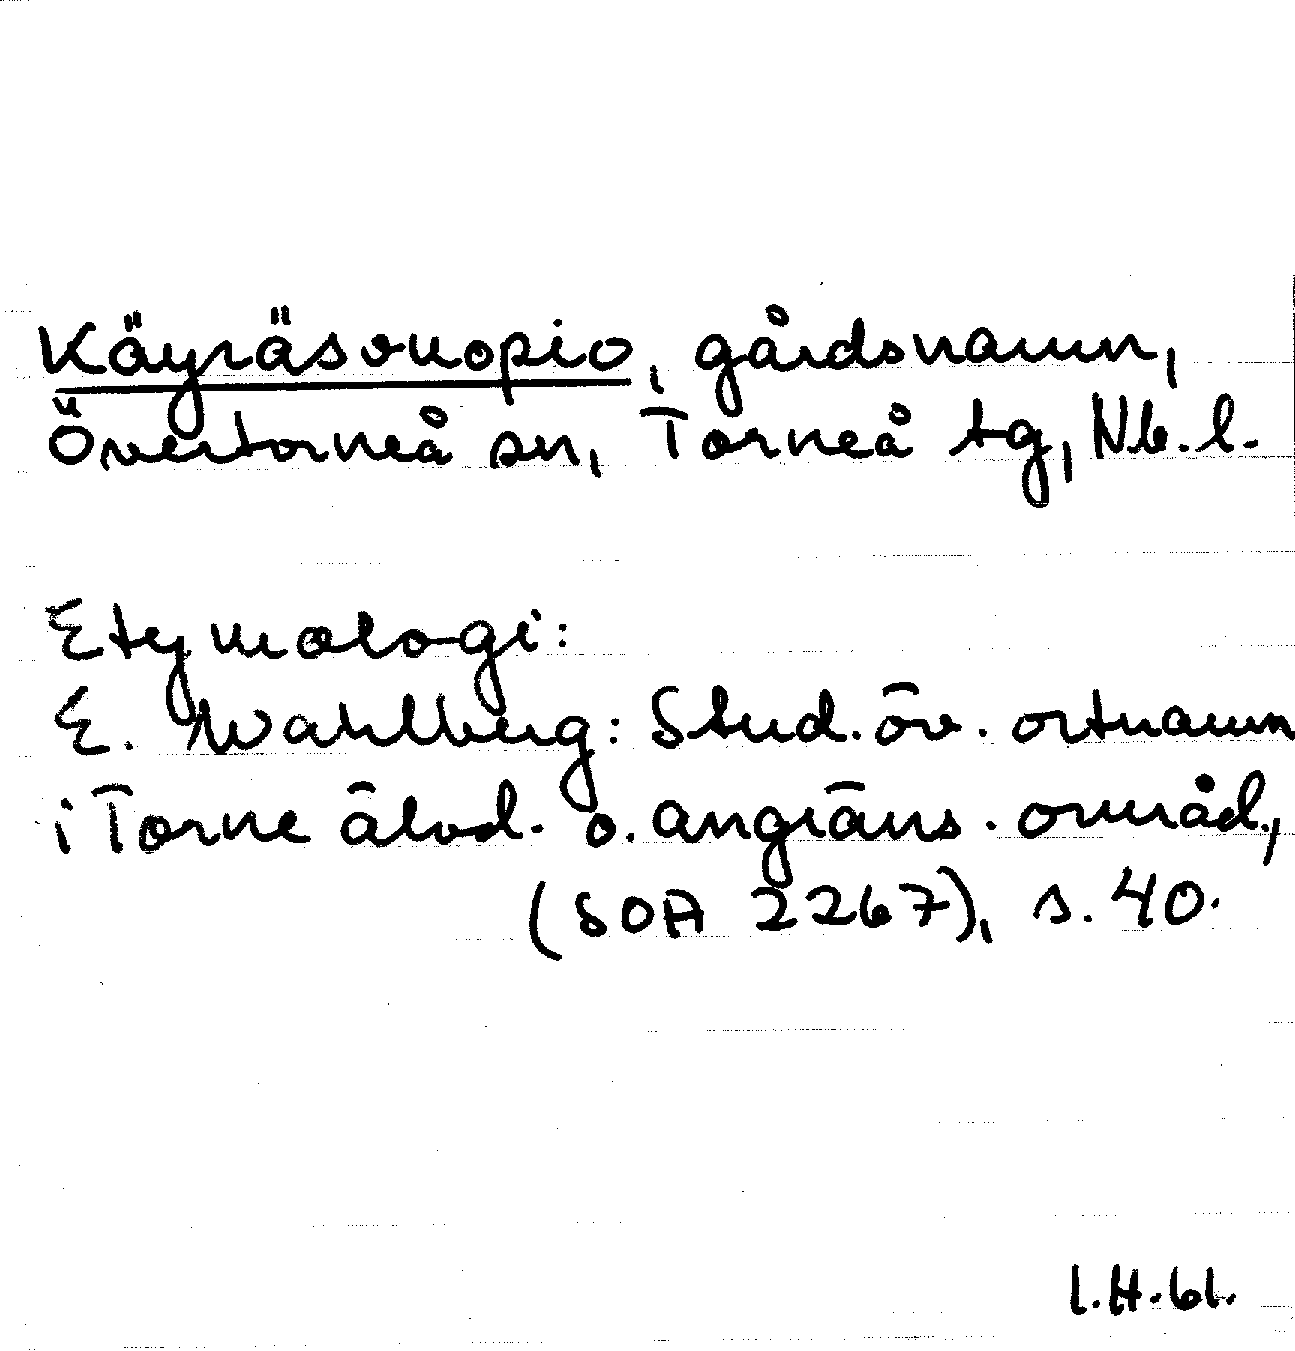 Käyräsvuopio, gårdsnamn,
Övertorneå sn, Torneå tg, Nb. l.
Etymologi:
E. Wahlberg: Stud. öv. ortnamn
i Torne älvd. o. angräns. områd.,
(SOA 2267), s. 40.
I.H.61.